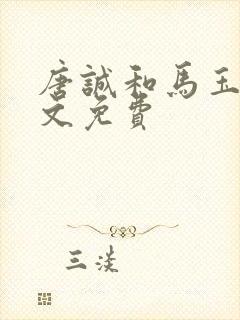 唐誠和馬玉
文免費
三淡